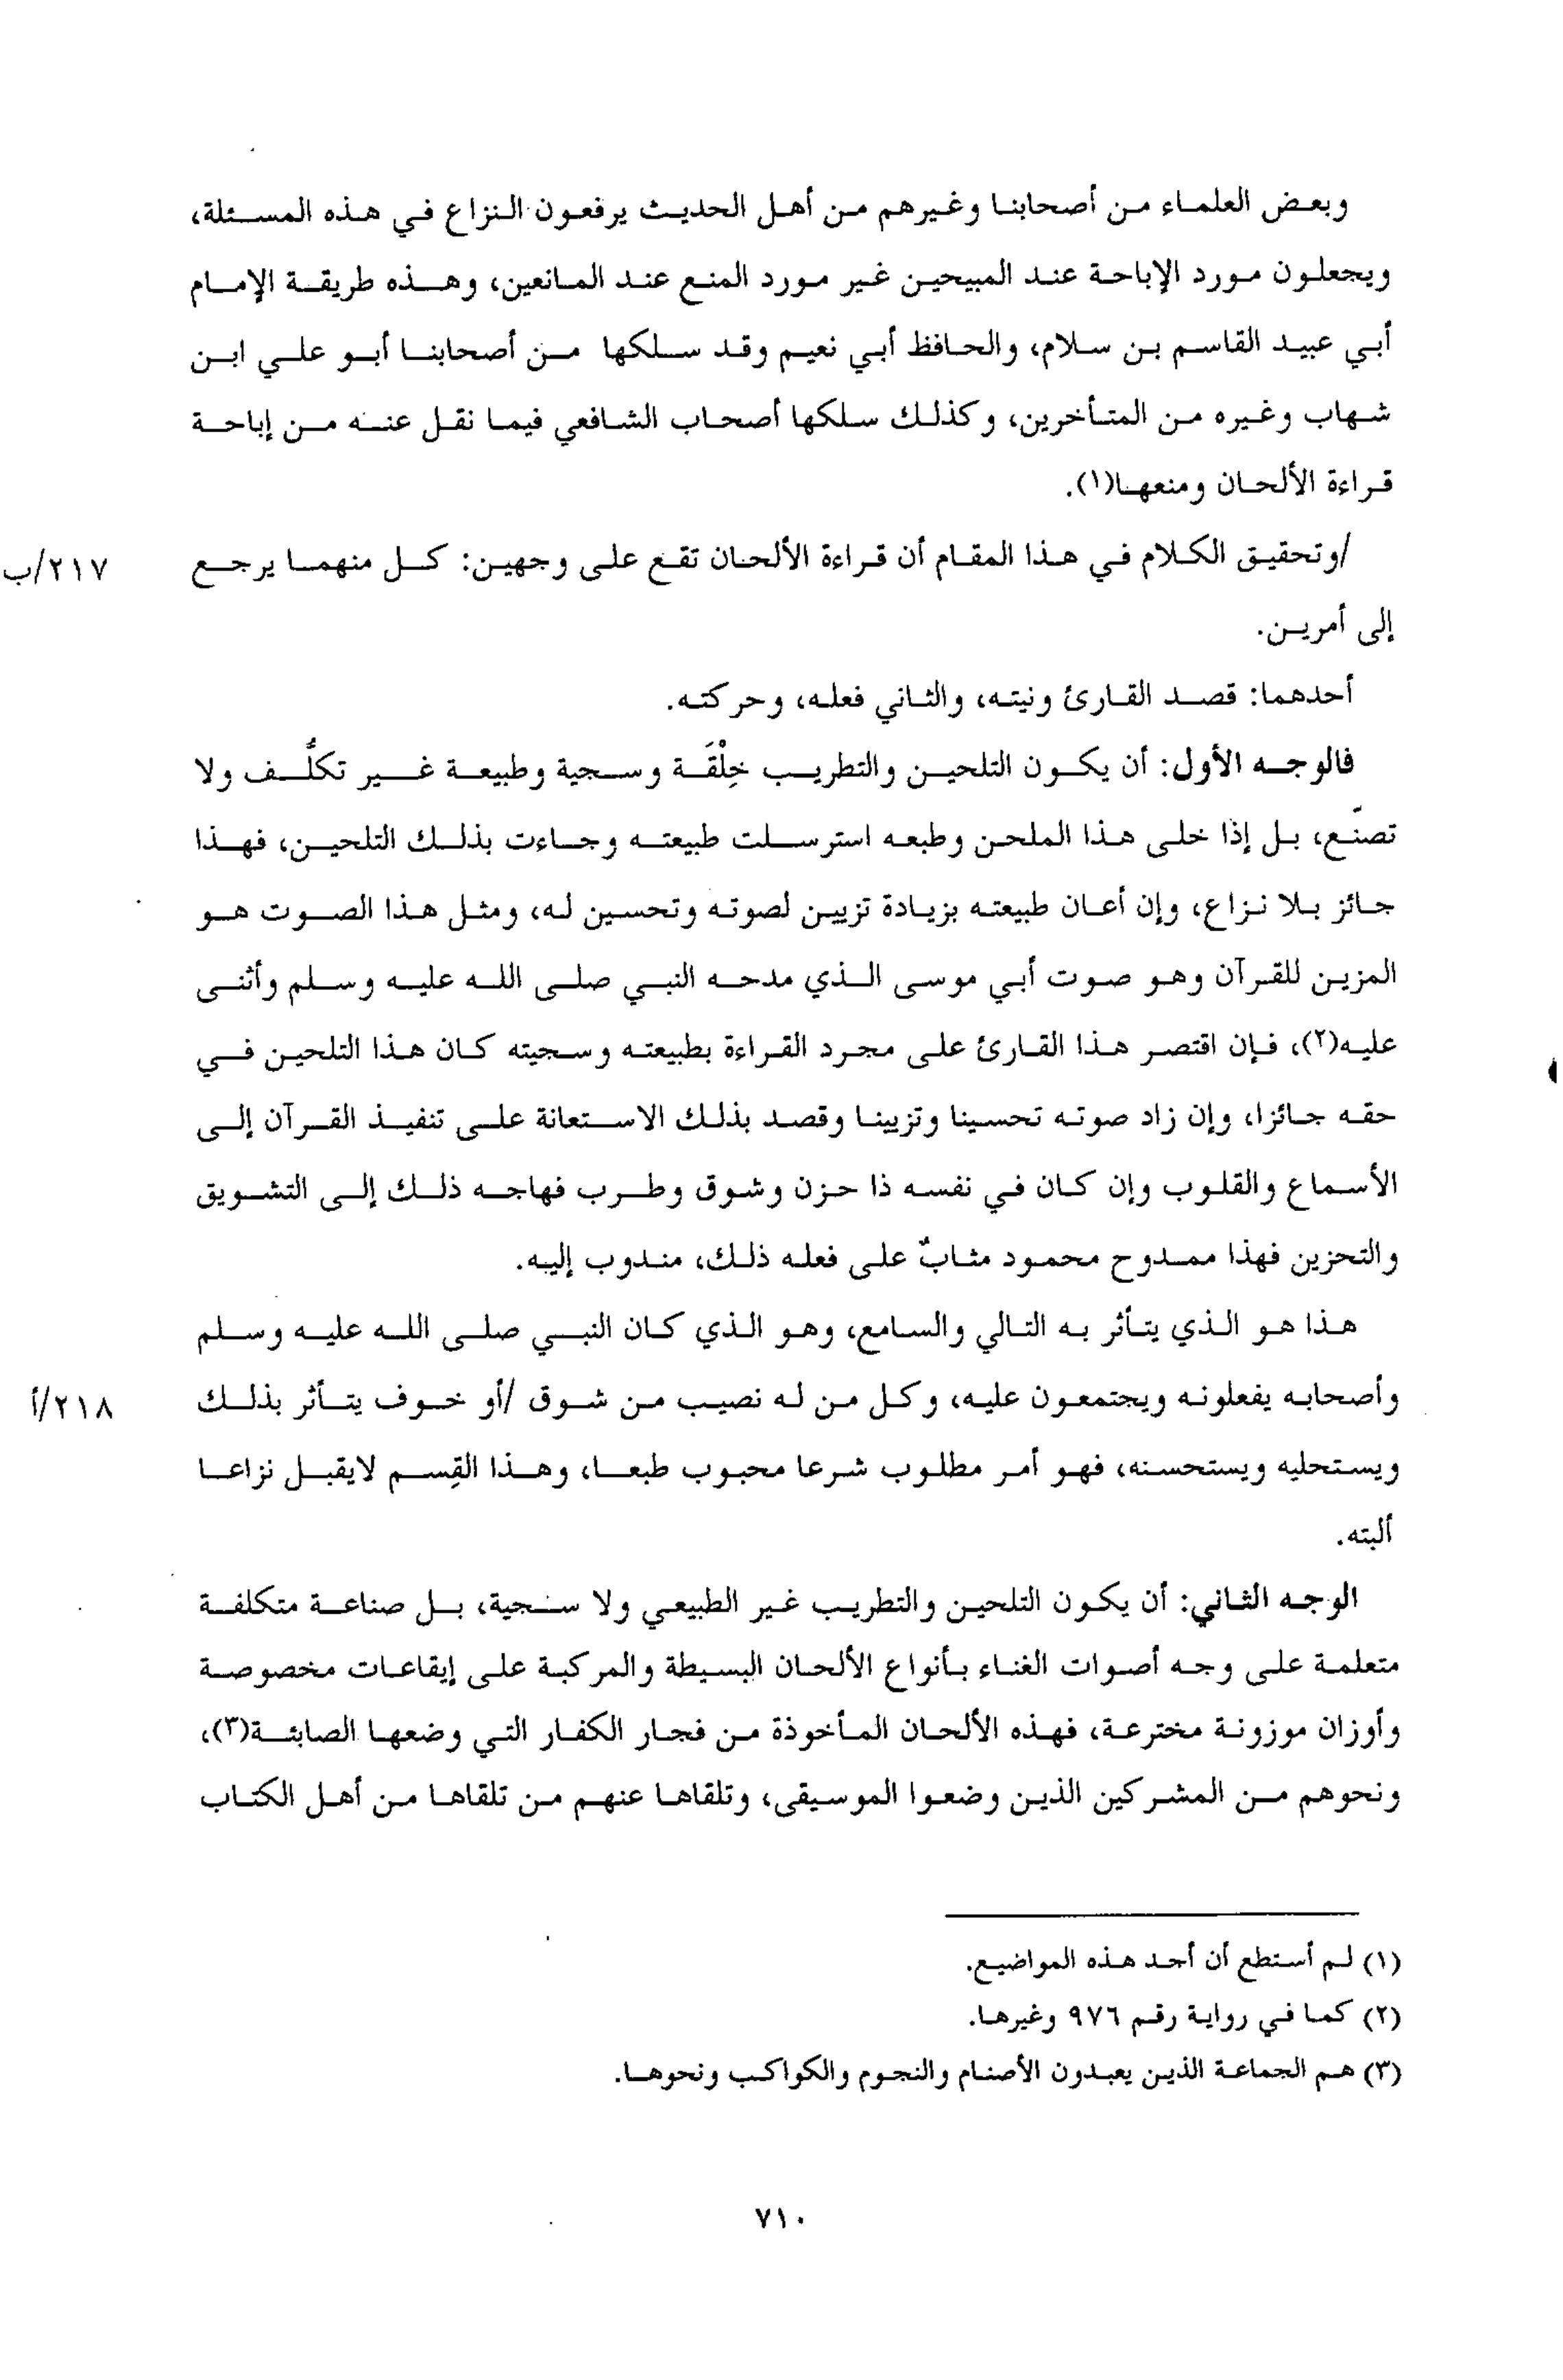 وبعض العلماء من أصحابنا وغيرهم من أهل الحديث يرفعون النزاع في هذه المسئلة،
ويجعلون مورد الإباحة عند المبيحين غير مورد المنع عند المانعين، وهذه طريقة الإمام
أبي عبيد القاسم بن سلام، والحافظ أبي نعيم وقد سلكها من أصحابنا أبو علي ابن
شهاب وغيره من المتأخرين، وكذلك سلكها أصحاب الشافعي فيما نقل عنه من إباحة
قراءة الألحان ومنعها(١).
/وتحقيق الكلام في هذا المقام أن قراءة الألحان تقع على وجهين: كل منهما يرجع ٢١٧/ب
إلى أمرين.
أحدهما: قصد القارئ ونيته، والثاني فعله، وحركته.
فالوجه الأول: أن يكون التلحين والتطريب خِلْقَة وسجية وطبيعة غير تكلُّف ولا
تصنّع، بل إذا خلى هذا الملحن وطبعه استرسلت طبيعته وجاءت بذلك التلحين، فهذا
جائز بلا نزاع، وإن أعان طبيعته بزيادة تزيين لصوته وتحسين له، ومثل هذا الصوت هو
المزين للقرآن وهو صوت أبي موسى الذي مدحه النبي صلى الله عليه وسلم وأثنى
عليه(٢)، فإن اقتصر هذا القارئ على مجرد القراءة بطبيعته وسجيته كان هذا التلحين في
حقه جائزا، وإن زاد صوته تحسينا وتزيينا وقصد بذلك الاستعانة على تنفيذ القرآن إلى
الأسماع والقلوب وإن كان في نفسه ذا حزن وشوق وطرب فهاجه ذلك إلى التشويق
والتحزين فهذا ممدوح محمود مثابٌ على فعله ذلك، مندوب إليه.
هذا هو الذي يتأثر به التالي والسامع، وهو الذي كان النبي صلى الله عليه وسلم
وأصحابه يفعلونه ويجتمعون عليه، وكل من له نصيب من شوق /أو خوف يتأثر بذلك ٢١٨/أ
ويستحليه ويستحسنه، فهو أمر مطلوب شرعا محبوب طبعا، وهذا القِسم لايقبل نزاعا
ألبته.
الوجه الثاني: أن يكون التلحين والتطريب غير الطبيعي ولا سنجية، بل صناعة متكلفة
متعلمة على وجه أصوات الغناء بأنواع الألحان البسيطة والمركبة على إيقاعات مخصوصة
وأوزان موزونة مخترعة، فهذه الألحان المأخوذة من فجار الكفار التي وضعها الصابئة(٣)،
ونحوهم من المشركين الذين وضعوا الموسيقى، وتلقاها عنهم من تلقاها من أهل الكتاب
(١) لم أستطع أن أجد هذه المواضيع.
(٢) كما في رواية رقم ٩٧٦ وغيرها.
(٣) هم الجماعة الذين يعبدون الأصنام والنجوم والكواكب ونحوها.
٧١٠